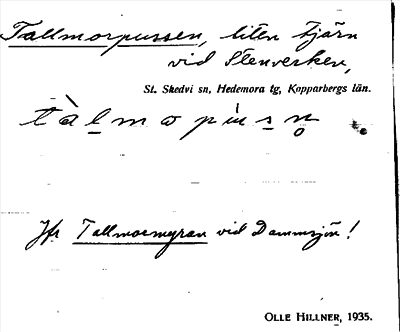 Tallmorpussen, liten tjärn
vid Stenverken,
St. Skedvi sn, Hedemora tg, Kopparbergs län.
tàlmopùsn̥
Jfr Tallmormyran vid Dammsjön!
OLLE HILLNER, 1935.